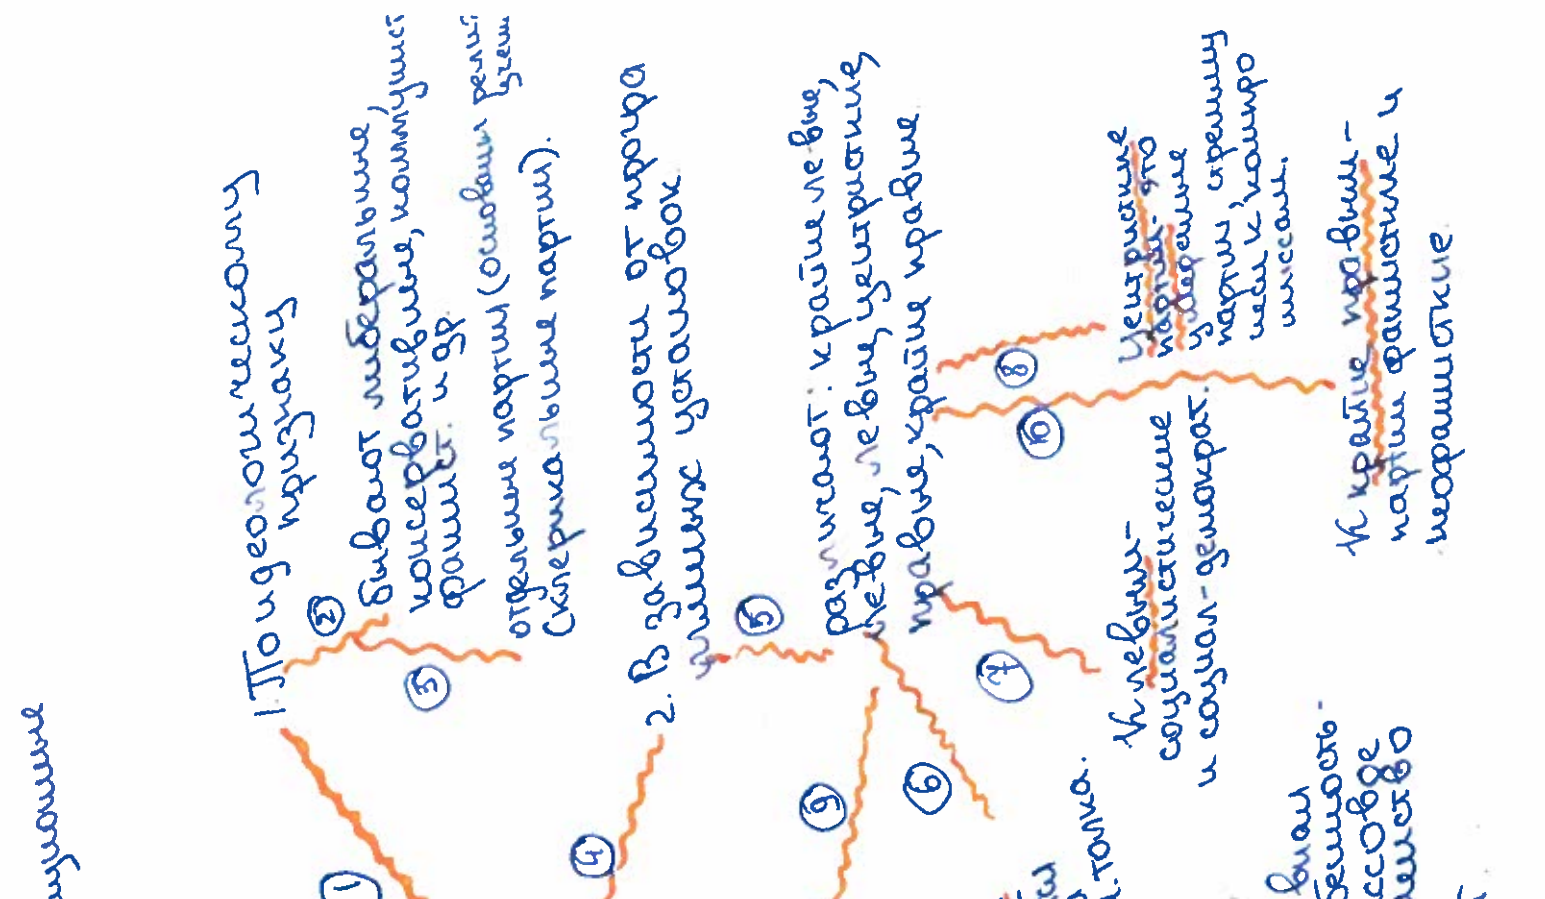 1. По идеологическому
признаку
②
бывают либеральные,
консервативные, коммунист
фашист. и др.
③
отдельные партии (основаны рели
(клерикальные партии).
2. В зависимости от програ
ммных установок
④
⑤
различают: крайне левые,
левые, левоцентристские,
правые, крайне правые.
⑨
⑥
⑦
⑧
⑩
К левым-
социалистические
и социал-демократ.
Центристкие
партии- это
умеренные
партии, стремящ
иеся к компро
миссам.
К крайне правым-
партии фашисткие и
неофашисткие
①
толка.